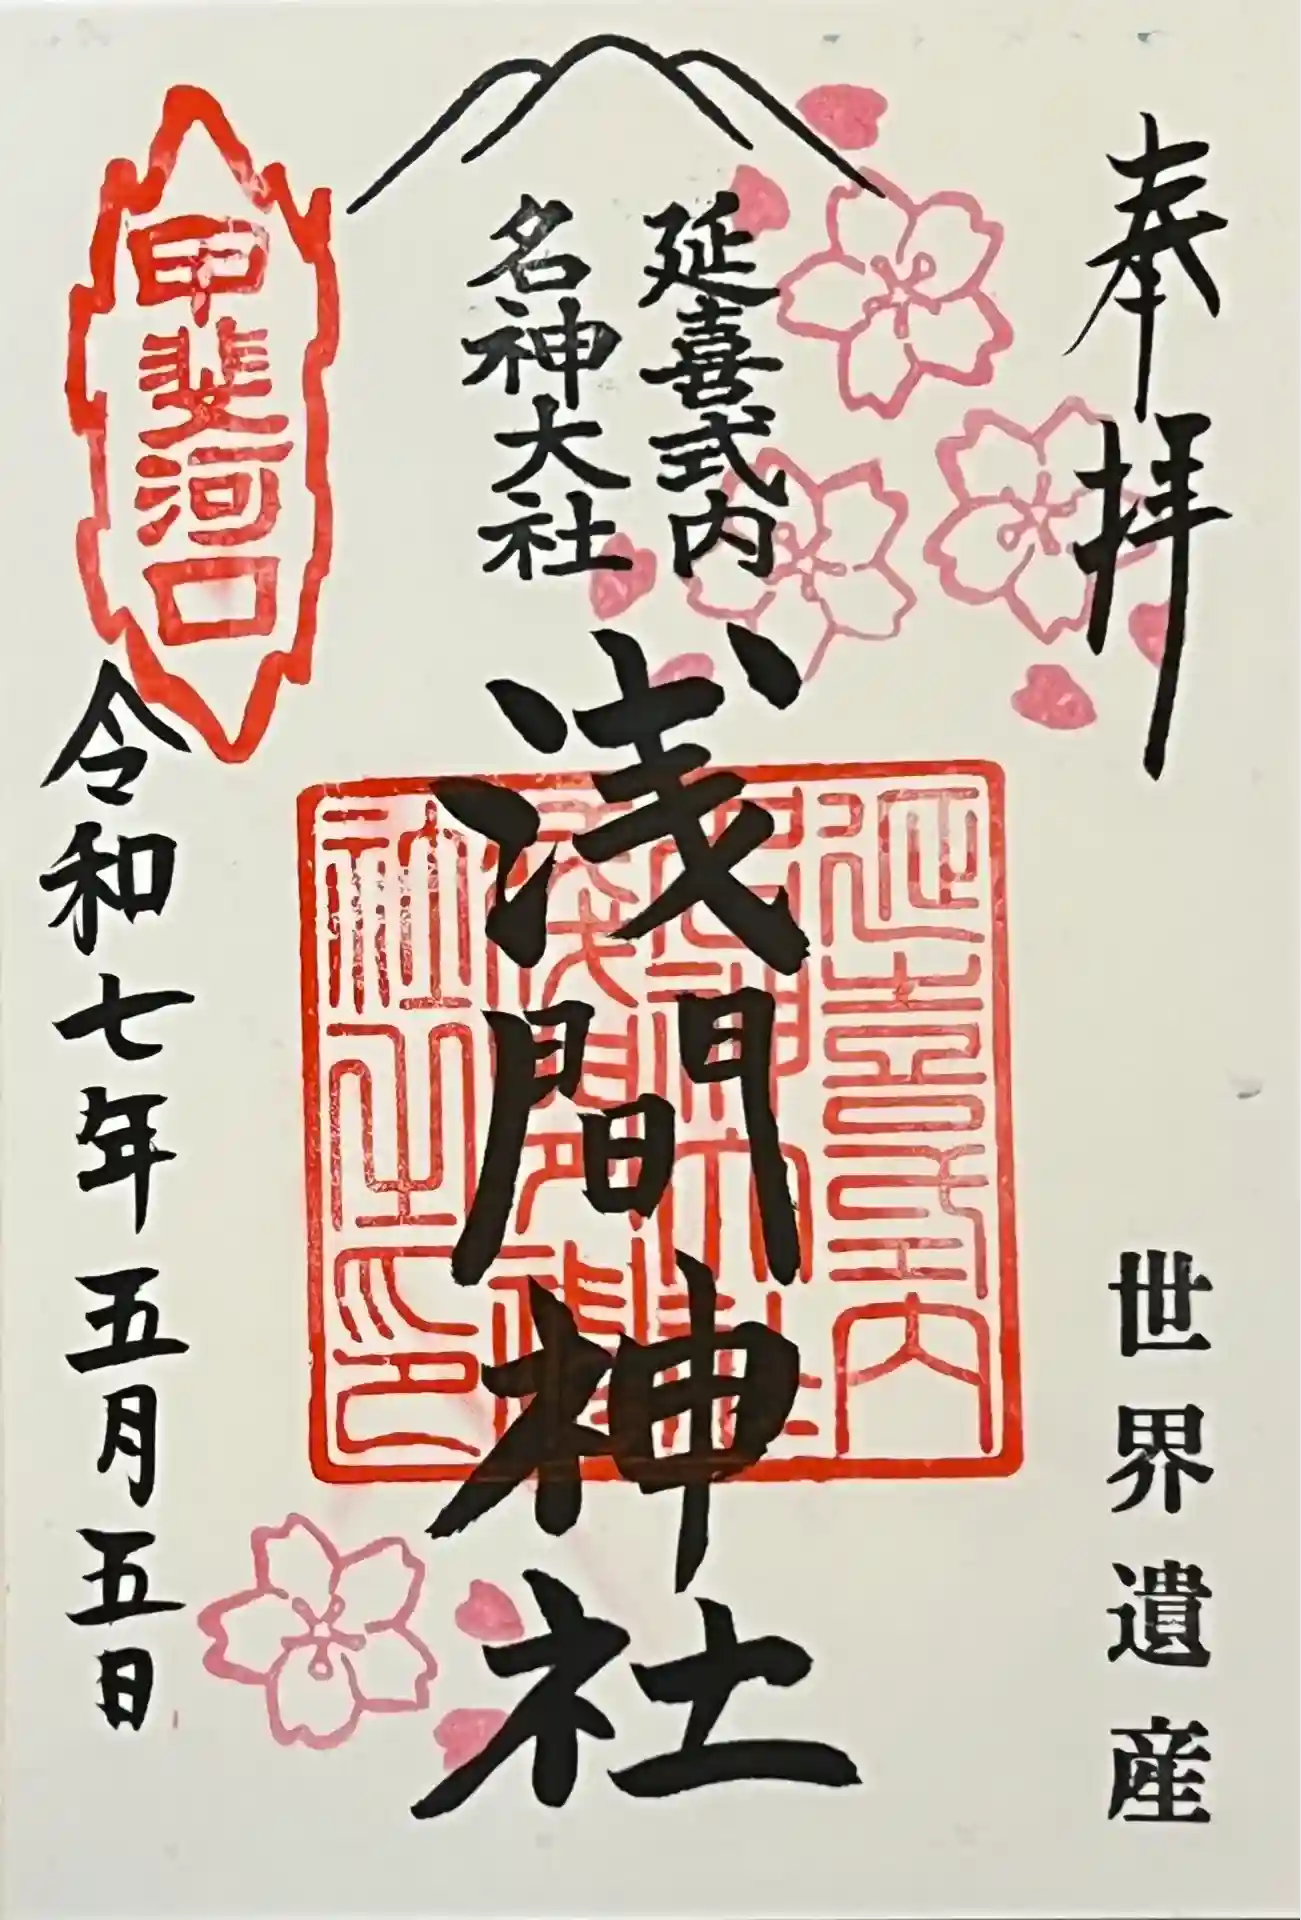 奉拝
世界遺産
延喜式内
名神大社
浅間神社
延喜式内
名神大社
浅間神
社之印
甲斐河口
令和七年五月五日